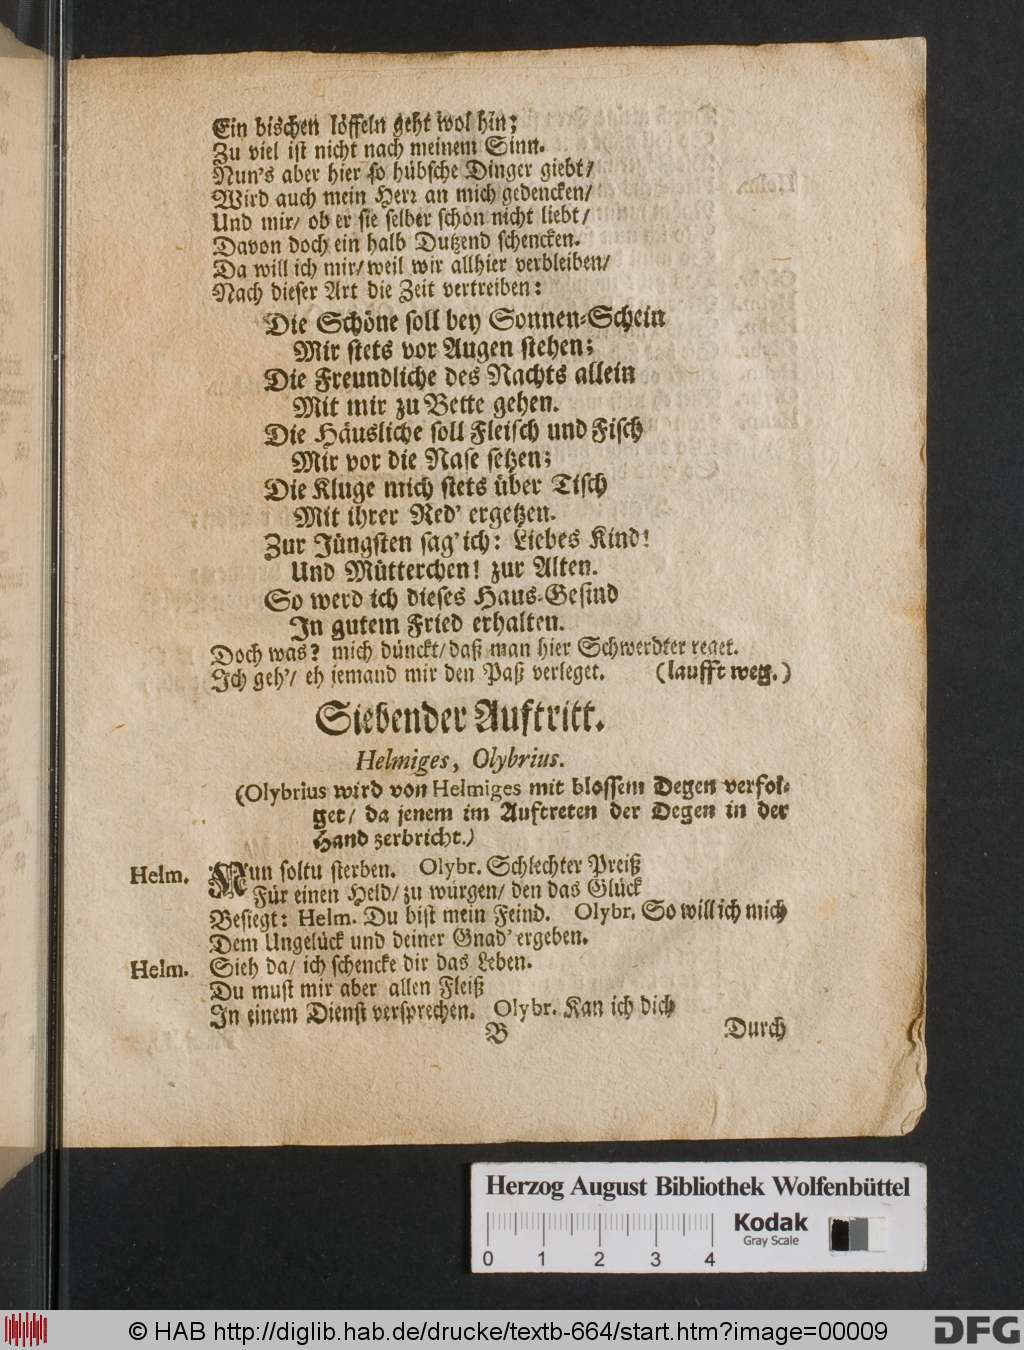 Ein bischen löffeln geht wol hin;
Zu viel ist nicht nach meinem Sinn.
Nun's aber hier so hübsche Dinger giebt/
Wird auch mein Herr an mich gedencken/
Und mir/ ob er sie selber schon nicht liebt/
Davon doch ein halb Dutzend schencken.
Da will ich mir/ weil wir allhier verbleiben/
Nach dieser Art die Zeit vertreiben:
Die Schöne soll bey Sonnen-Schein
Mir stets vor Augen stehen;
Die Freundliche des Nachts allein
Mit mir zu Bette gehen.
Die Häusliche soll Fleisch und Fisch
Mir vor die Nase setzen;
Die Kluge mich stets über Tisch
Mit ihrer Red' ergetzen.
Zur Jüngsten sag' ich: Liebes Kind!
Und Mütterchen! zur Alten.
So werd ich dieses Haus-Gesind
In gutem Fried erhalten.
Doch was? mich dünckt/ daß man hier Schwerdter reget.
Ich geh'/ eh jemand mir den Paß verleget. (laufft weg.)
Siebender Auftritt.
Helmiges, Olybrius.
(Olybrius wird von Helmiges mit blossem Degen verfol-
get/ da jenem im Auftreten der Degen in der
Hand zerbricht.)
Helm. Nun soltu sterben. Olybr. Schlechter Preiß
Für einen Held/ zu würgen/ den das Glück
Besiegt: Helm. Du bist mein Feind. Olybr. So will ich mich
Dem Ungelück und deiner Gnad' ergeben.
Helm. Sieh da/ ich schencke dir das Leben.
Du must mir aber allen Fleiß
In einem Dienst versprechen. Olybr. Kan ich dich
B Durch
Herzog August Bibliothek Wolfenbüttel
Kodak
Gray Scale
0 1 2 3 4
© HAB http://diglib.hab.de/drucke/textb-664/start.htm?image=00009
DFG